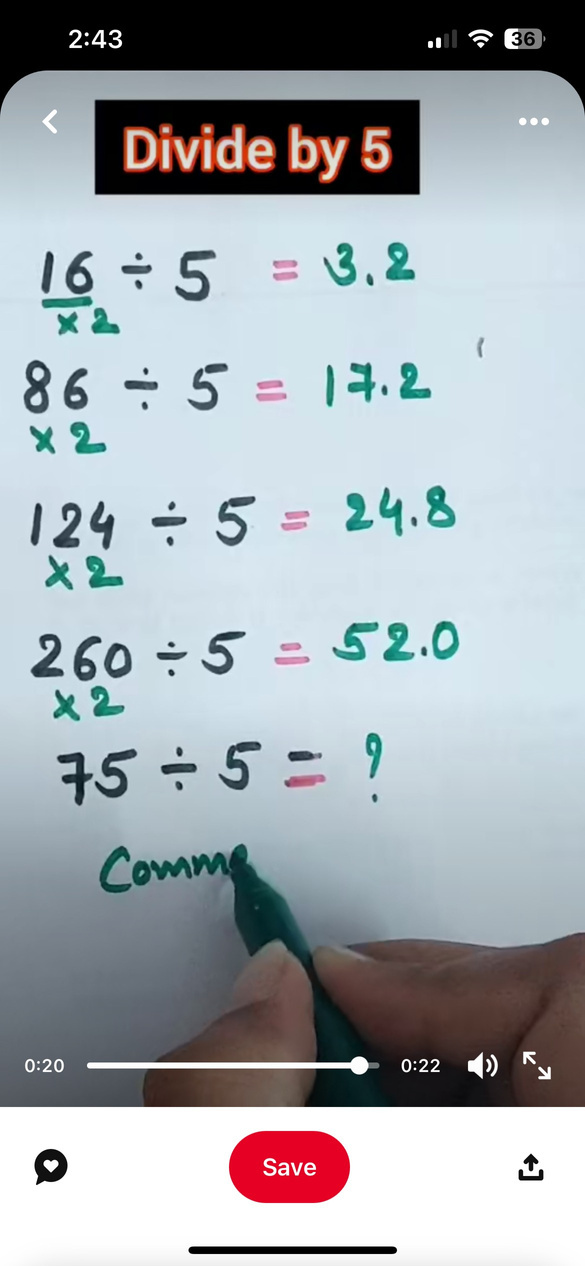 2:43
36
Divide by 5
16 ÷ 5 = 3.2
×2
86 ÷ 5 = 17.2
×2
124 ÷ 5 = 24.8
×2
260 ÷ 5 = 52.0
×2
75 ÷ 5 = ?
Comme
0:20
0:22
Save